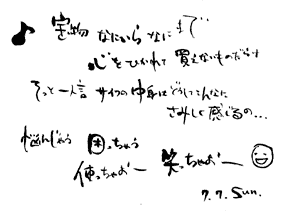 ♪ 宝物 なにいろ なに まで
心をひかれて 買えないものだらけ
そっと一人言 サイフの中身はどうしてこんなに
さみしく感じるの...
悩んじゃう 困っちゃう
使っちゃおー 笑っちゃおー
7.7. Sun.